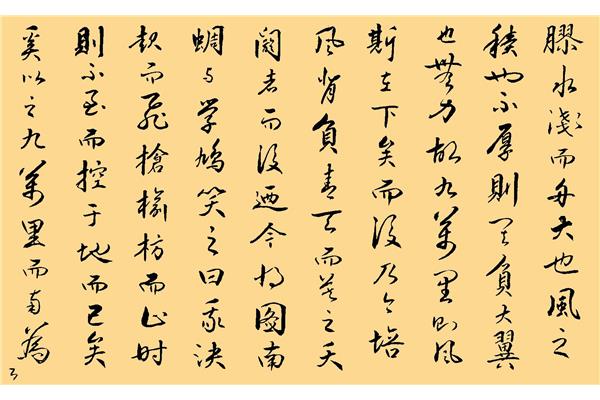 膠水淺而舟大也風之
積也不厚則其負大翼
也無力故九萬里則風
斯在下矣而後乃今培
風背負青天而莫之夭
閼者而後迺今將圖南
蜩与學鳩笑之曰我決
起而飛搶榆枋而止時
則不至而控于地而已矣
奚以之九萬里而南為